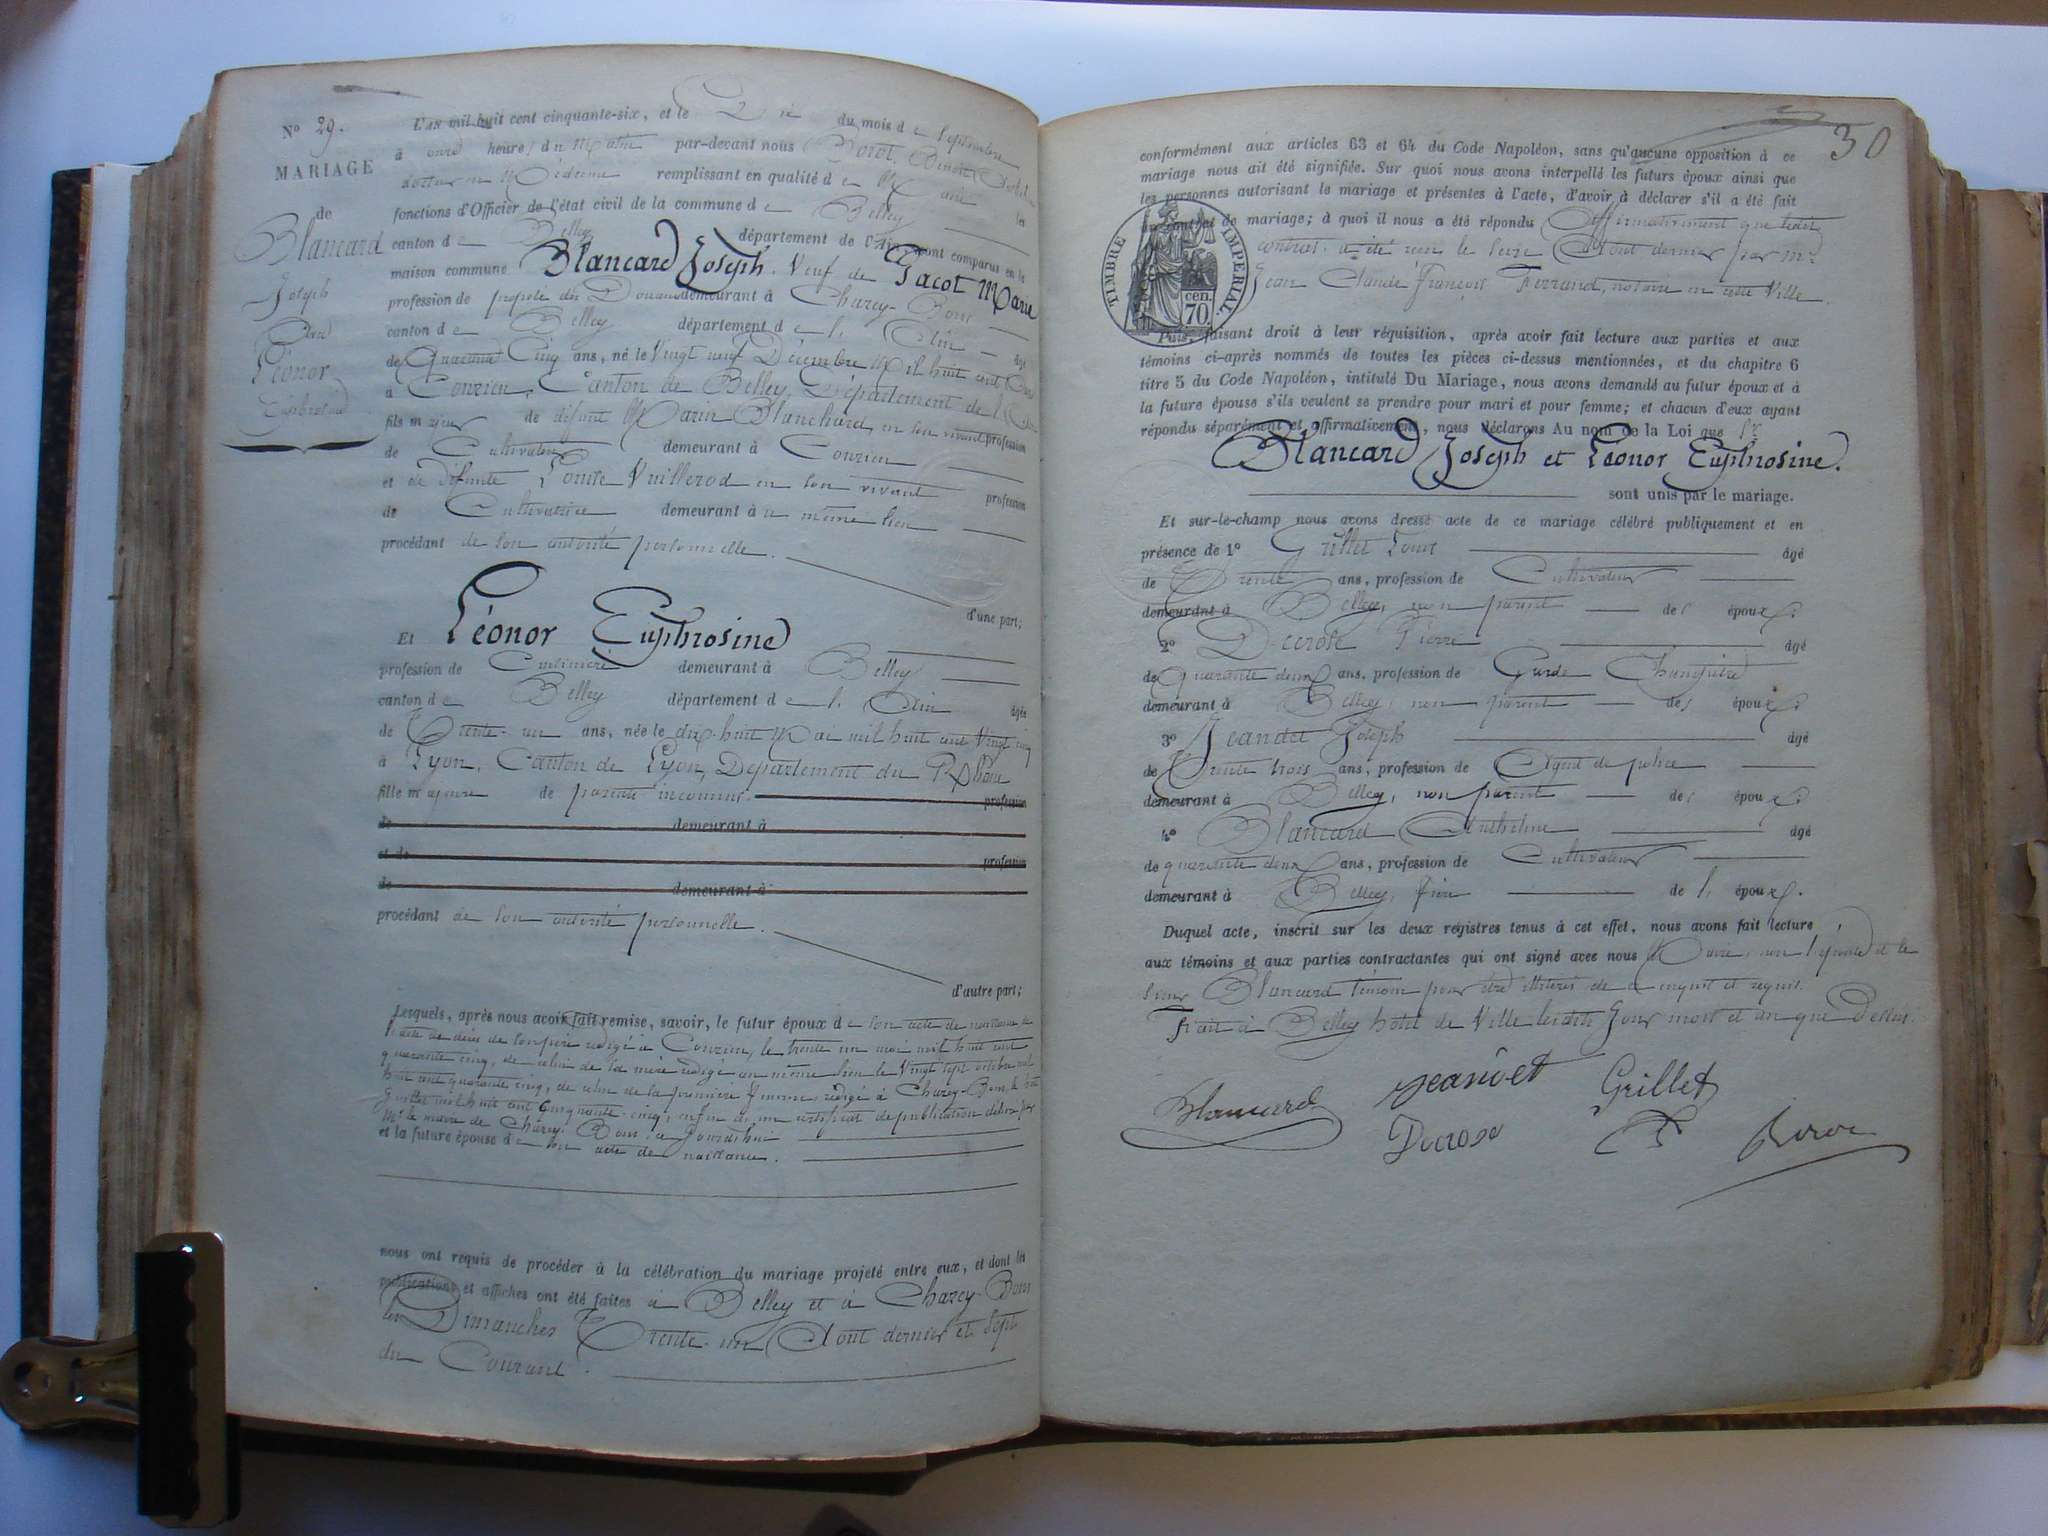 N° 29.
MARIAGE
de
Blancard
Joseph
Léonor
Euphrosine
L'AN mil huit cent cinquante-six, et le du mois de Septembre
à onze heures du Matin par-devant nous
docteur en Médecine remplissant en qualité de Maire les
fonctions d'Officier de l'état civil de la commune de Belley
canton de Belley département de l'Ain, sont comparus en la
maison commune Blancard Joseph. Veuf de Jacot Marie
profession de préposé des Douanes demeurant à Charey-Bons
canton de Belley département de l'Ain âgé
de Quarante Cinq ans, né le Vingt neuf Décembre Mil huit cent
à Conzieu, Canton de Belley, Département de l'Ain
fils majeur de défunt Marin Blanchard, en son vivant profession
de Cultivateur demeurant à Conzieu
et de défunte Louise Vuillerod en son vivant profession
de Cultivatrice demeurant à u même lieu
procédant de son autorité personnelle.
d'une part;
Et Léonor Euphrosine
profession de Cuisinière demeurant à Belley
canton de Belley département de l'Ain âgée
de Trente-un ans, née le dix-huit Mai mil huit cent Vingt cinq
à Lyon, Canton de Lyon, Département du Rhône
fille majeure de parents inconnus. profession
de demeurant à
et de profession
de demeurant à
procédant de son autorité personnelle.
d'autre part;
Lesquels, après nous avoir fait remise, savoir, le futur époux de son acte de naissance de
l'acte de décès de son père rédigé à Conzieu, le trente un mai mil huit cent
quarante cinq, de celui de sa mère rédigé au même lieu le Vingt sept octobre mil
huit cent quarante cinq, de celui de sa première femme, rédigé à Charey-Bons, le huit
Juillet mil huit cent Cinquante-cinq, enfin d'un certificat de publication délivré par
Mr le maire de Charey-Bons, ce jourd'hui
et la future épouse de son acte de naissance.
nous ont requis de procéder à la célébration du mariage projeté entre eux, et dont les
publications et affiches ont été faites à Belley et à Charey-Bons
les Dimanches Trente-un Août dernier et Sept
du Courant.
30
conformément aux articles 63 et 64 du Code Napoléon, sans qu'aucune opposition à ce
mariage nous ait été signifiée. Sur quoi nous avons interpellé les futurs époux ainsi que
les personnes autorisant le mariage et présentes à l'acte, d'avoir à déclarer s'il a été fait
un contrat de mariage; à quoi il nous a été répondu Affirmativement que ledit
contrat a été reçu le Août dernier par Me
Jean Claude François Ferrand, notaire en cette Ville.
TIMBRE IMPÉRIAL.
70. cen.
Puis, faisant droit à leur réquisition, après avoir fait lecture aux parties et aux
témoins ci-après nommés de toutes les pièces ci-dessus mentionnées, et du chapitre 6
titre 5 du Code Napoléon, intitulé Du Mariage, nous avons demandé au futur époux et à
la future épouse s'ils veulent se prendre pour mari et pour femme; et chacun d'eux ayant
répondu séparément et affirmativement, nous déclarons Au nom de la Loi que
Blancard Joseph et Léonor Euphrosine.
sont unis par le mariage.
Et sur-le-champ nous avons dressé acte de ce mariage célébré publiquement et en
présence de 1° Grillet Louis âgé
de Trente ans, profession de Cultivateur
demeurant à Belley, non parent des époux.
2° Decrose Pierre âgé
de quarante deux ans, profession de Garde Champêtre
demeurant à Belley, non parent des époux.
3° Jeandet Joseph âgé
de Trente trois ans, profession de Agent de police
demeurant à Belley, non parent des époux.
4° Blancard Anthelme âgé
de quarante deux ans, profession de Cultivateur
demeurant à Belley, frère de l'époux.
Duquel acte, inscrit sur les deux registres tenus à cet effet, nous avons fait lecture
aux témoins et aux parties contractantes qui ont signé avec nous Maire, non l'épouse et le
Sieur Blancard témoin pour être illitérés de ce enquis et requis.
Fait à Belley hôtel de Ville lesdits Jour mois et an que Dessus.
Blancard Jeandet Grillet
Decrose